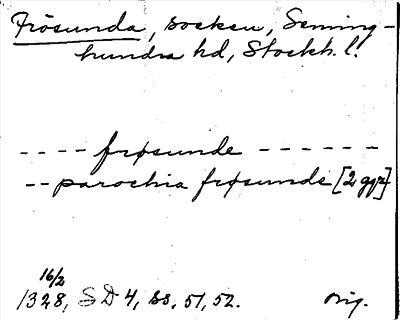 Frösunda, socken, Seming-
hundra hd, Stockh. l.
---- frøsunde ------
-- parochia frøsunde [2 ggr]
16/2
1328, SD 4, ss. 51, 52. orig.